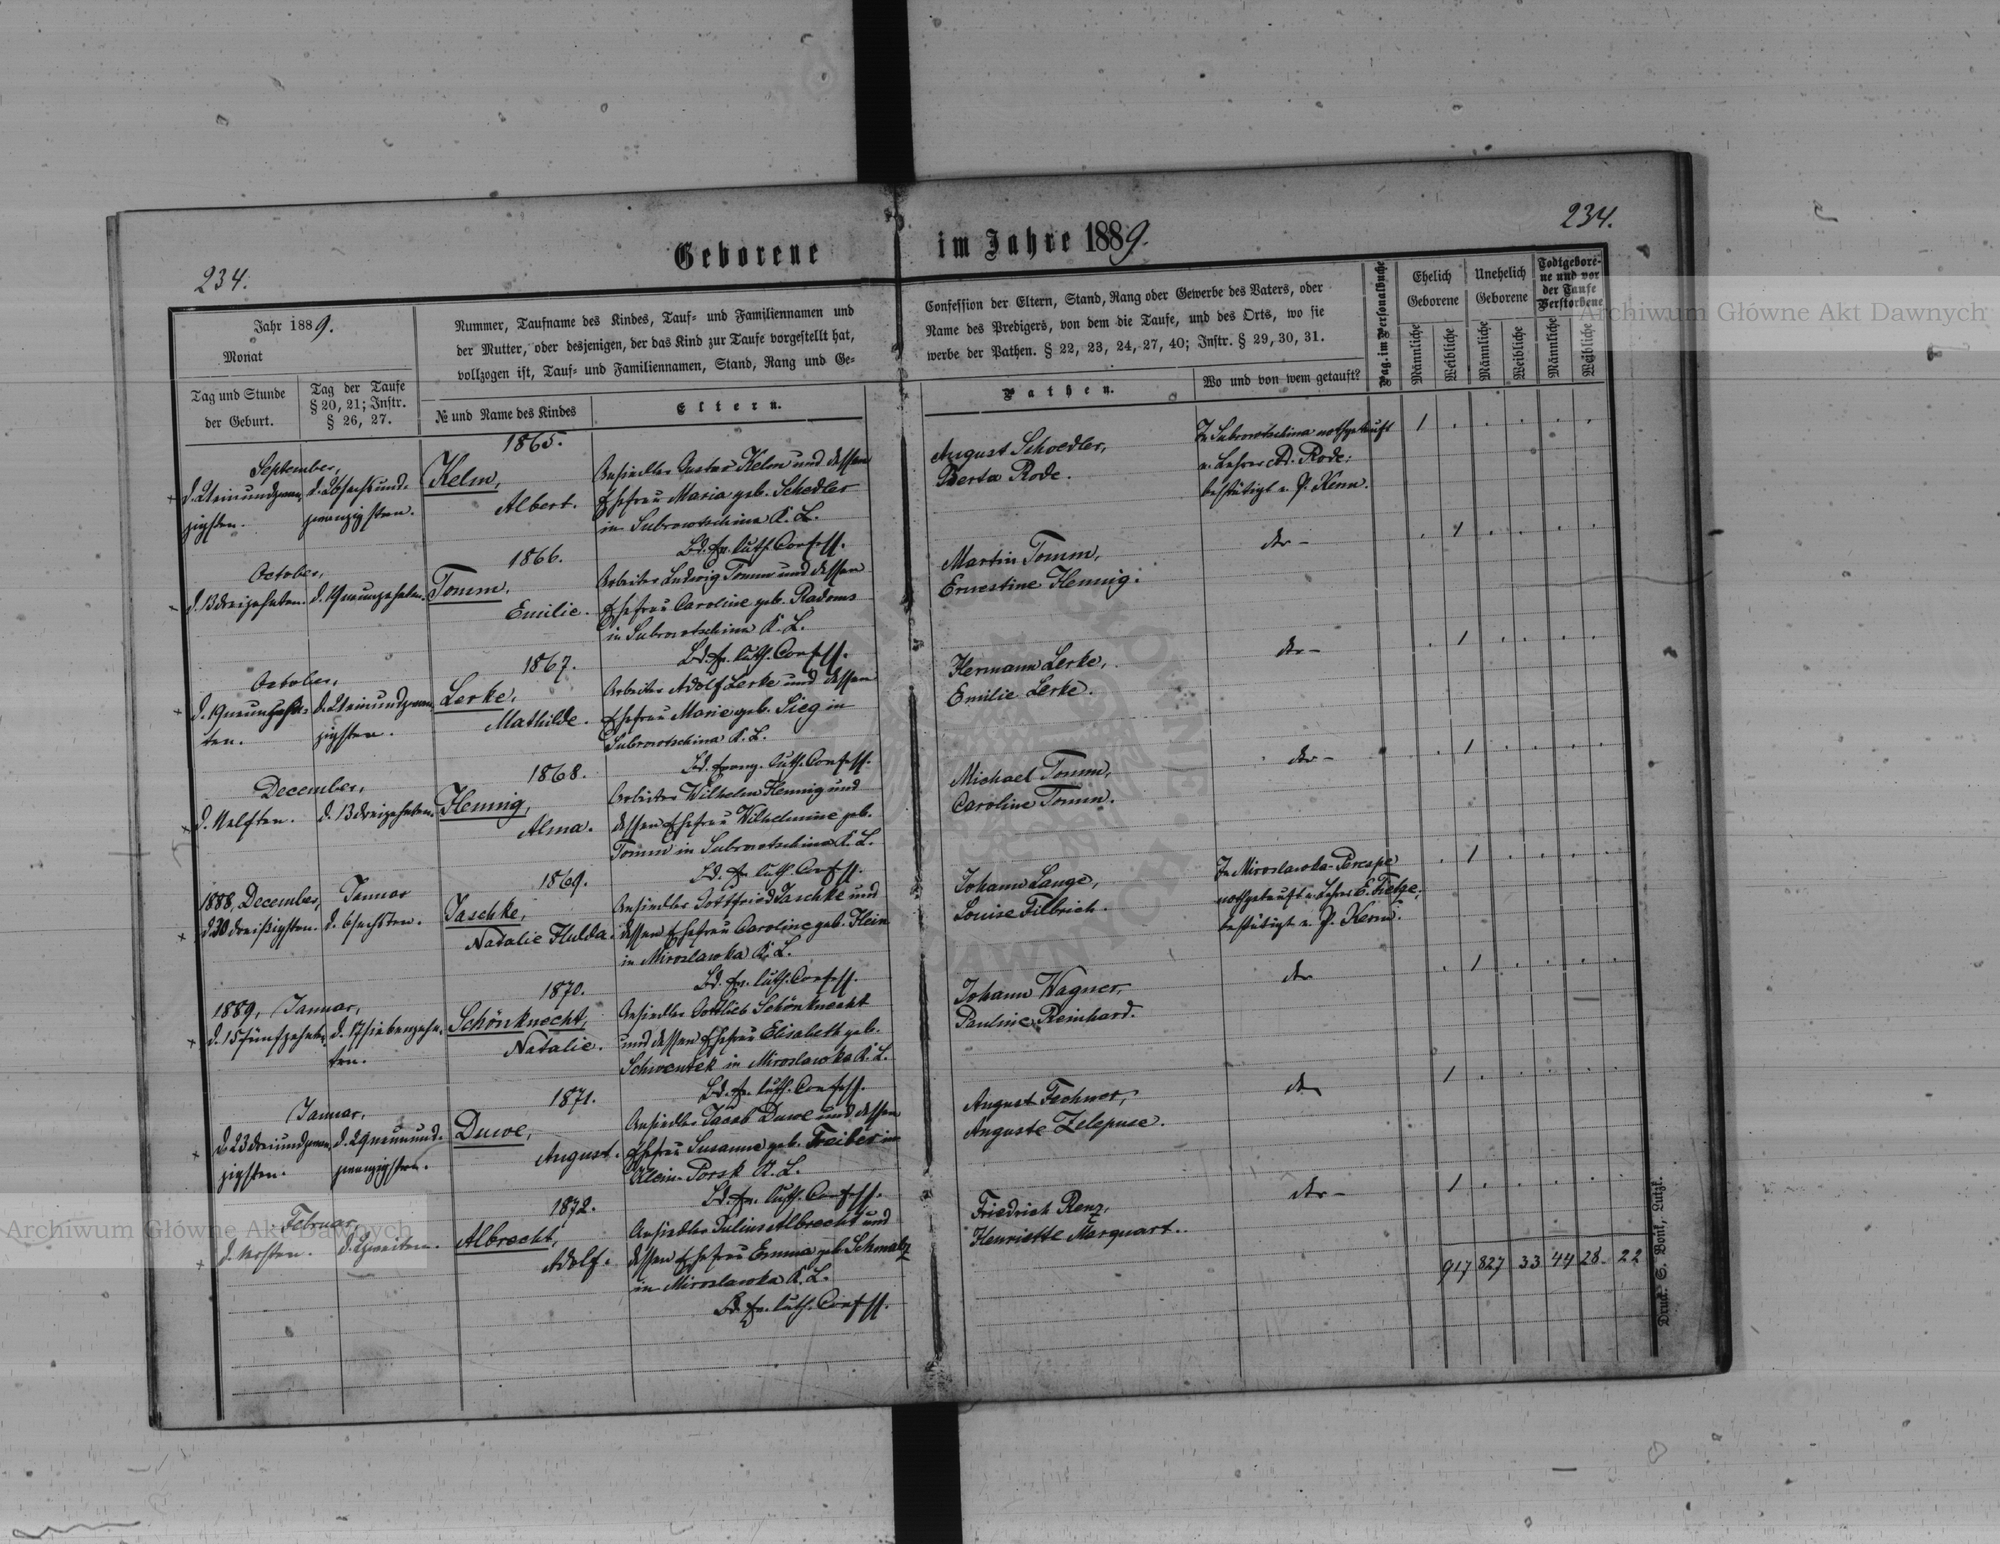 234.
Geborene
im Jahre 1889.
234.
Jahr 1889.
Monat
Tag und Stunde
der Geburt.
Tag der Taufe
§ 20, 21; Instr.
§ 26, 27.
Nummer, Taufname des Kindes, Tauf- und Familiennamen und
der Mutter, oder desjenigen, der das Kind zur Taufe vorgestellt hat,
vollzogen ist, Tauf- und Familiennamen, Stand, Rang und Ge-
№ und Name des Kindes
Eltern.
Confession der Eltern, Stand, Rang oder Gewerbe des Vaters, oder
Name des Predigers, von dem die Taufe, und des Orts, wo sie
werbe der Pathen. § 22, 23, 24, 27, 40; Instr. § 29, 30, 31.
Pathen.
Wo und von wem getauft?
Pag. im Personalbuche
Ehelich
Geborene
Unehelich
Geborene
Todtgebore-
ne und vor
der Taufe
Verstorbene
Männliche
Weibliche
Männliche
Weibliche
Männliche
Weibliche
Archiwum Główne Akt Dawnych
1865.
September,
d. 21 einundzwan-
zigsten.
d. 26 sechsund-
zwanzigsten.
Kelm,
Albert.
Ansiedler Gustav Kelm und dessen
Ehefrau Maria geb. Schedler
in Subrowtschina K. L.
Bd. Ev. luth. Confess.
August Schoedler,
Berta Rode.
In Subrowtschina nothgetauft
v. Lehrer Ad. Rode;
bestätigt v. P. Kern.
1866.
October,
d. 13 dreizehnten.
d. 19 neunzehnten.
Tomm,
Emilie.
Arbeiter Ludwig Tomm und dessen
Ehefrau Caroline geb. Radoms
in Subrowtschina K. L.
Bd. Ev. luth. Confess.
Martin Tomm,
Ernestine Hennig.
1867.
October,
d. 19 neunzehn-
ten.
d. 21 einundzwan-
zigsten.
Lerke,
Mathilde.
Arbeiter Adolf Lerke und dessen
Ehefrau Marie geb. Sieg in
Subrowtschina K. L.
Bd. evang. luth. Confess.
Hermann Lerke,
Emilie Lerke.
1868.
December,
d. 11 elften.
d. 13 dreizehnten.
Hennig,
Alma.
Arbeiter Wilhelm Hennig und
dessen Ehefrau Wilhelmine geb.
Tomm in Subrowtschina K. L.
Bd. Ev. luth. Confess.
Michael Tomm,
Caroline Tomm.
1869.
1888, December,
d. 30 dreißigsten.
Januar
d. 6 sechsten.
Jaschke,
Natalie Hulda.
Ansiedler Gottfried Jaschke und
dessen Ehefrau Caroline geb. Klein
in Miroslawka K. L.
Bd. Ev. luth. Confess.
Johann Lange,
Louise Filbrich.
nothgetauft v. Lehrer E. Tietze;
bestätigt v. P. Kern.
1870.
1889, Januar,
d. 15 fünfzehnten.
d. 17 siebenzehn-
ten.
Schönknecht,
Natalie.
Ansiedler Gottlieb Schönknecht
und dessen Ehefrau Elisabeth geb.
Schwentek in Miroslawka K. L.
Bd. Ev. luth. Confess.
Johann Wagner,
Pauline Reinhard.
1871.
Januar,
d. 23 dreiundzwan-
zigsten.
d. 29 neunund-
zwanzigsten.
Duwe,
August.
Ansiedler Jacob Duwe und dessen
Ehefrau Susanna geb. Treiber in
Klein-Porsk K. L.
Bd. Ev. luth. Confess.
August Fechner,
Auguste Zelepuse.
1872.
Februar,
d. 1 ersten.
d. 2 zweiten.
Albrecht,
Adolf.
Ansiedler Julius Albrecht und
dessen Ehefrau Emma geb. Schmalz
in Miroslawka K. L.
Bd. Ev. luth. Confess.
Friedrich Renz,
Henriette Marquart.
917 827 33 44 28. 22
Druck. S. Bonk, Lutzk.
Archiwum Główne Akt Dawnych